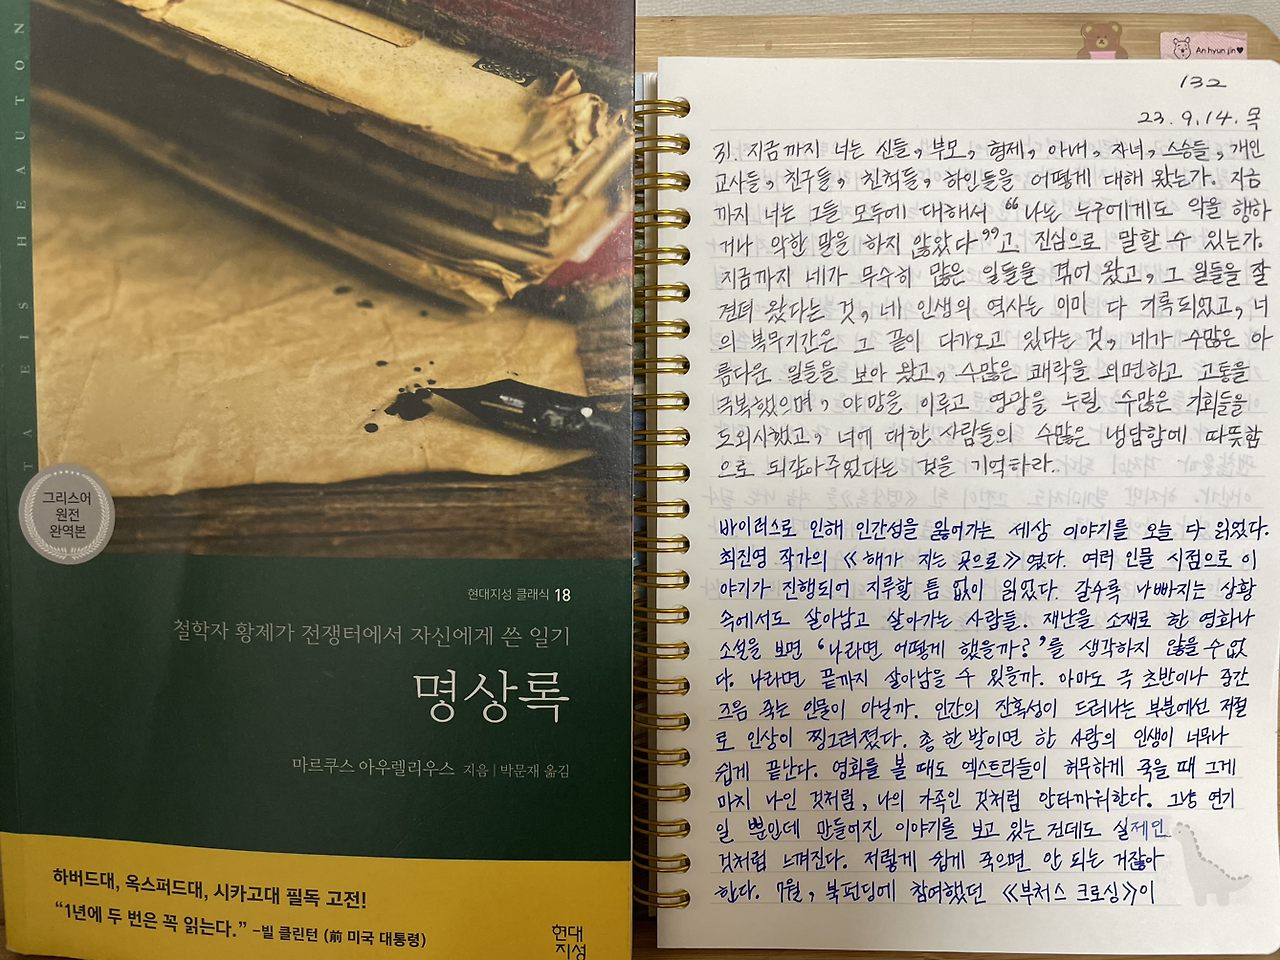 TA EIS HEAUTON
그리스어
원전
완역본
현대지성 클래식 18
철학자 황제가 전쟁터에서 자신에게 쓴 일기
명상록
마르쿠스 아우렐리우스 지음 | 박문재 옮김
하버드대, 옥스퍼드대, 시카고대 필독 고전!
“1년에 두 번은 꼭 읽는다.” –빌 클린턴 (前 미국 대통령)
현대
지성
An hyun jin♥
132
23. 9. 14. 목
31. 지금까지 너는 신들, 부모, 형제, 아내, 자녀, 스승들, 개인
교사들, 친구들, 친척들, 하인들을 어떻게 대해 왔는가. 지금
까지 너는 그들 모두에 대해서 “나는 누구에게도 악을 행하
거나 악한 말을 하지 않았다”고 진심으로 말할 수 있는가.
지금까지 네가 무수히 많은 일들을 겪어 왔고, 그 일들을 잘
견뎌 왔다는 것, 네 인생의 역사는 이미 다 기록되었고, 너
의 복무기간은 그 끝이 다가오고 있다는 것, 네가 수많은 아
름다운 일들을 보아 왔고, 수많은 쾌락을 외면하고 고통을
극복했으며, 야망을 이루고 영광을 누릴 수많은 기회들을
도외시했고, 너에 대한 사람들의 수많은 냉담함에 따뜻함
으로 되갚아주었다는 것을 기억하라.
바이러스로 인해 인간성을 잃어가는 세상 이야기를 오늘 다 읽었다.
최진영 작가의 《해가 지는 곳으로》였다. 여러 인물 시점으로 이
야기가 진행되어 지루할 틈 없이 읽었다. 갈수록 나빠지는 상황
속에서도 살아남고 살아가는 사람들. 재난을 소재로 한 영화나
소설을 보면 ‘나라면 어떻게 했을까?’를 생각하지 않을 수 없
다. 나라면 끝까지 살아남을 수 있을까. 아마도 극 초반이나 중간
즈음 죽는 인물이 아닐까. 인간의 잔혹성이 드러나는 부분에선 저절
로 인상이 찡그려졌다. 총 한 발이면 한 사람의 인생이 너무나
쉽게 끝난다. 영화를 볼 때도 엑스트라들이 허무하게 죽을 때 그게
마치 나인 것처럼, 나의 가족인 것처럼 안타까워한다. 그냥 연기
일 뿐인데 만들어진 이야기를 보고 있는 건데도 실제인
것처럼 느껴진다. 저렇게 쉽게 죽으면 안 되는 거잖아
한다. 7월, 북펀딩에 참여했던 《부처스 크로싱》이